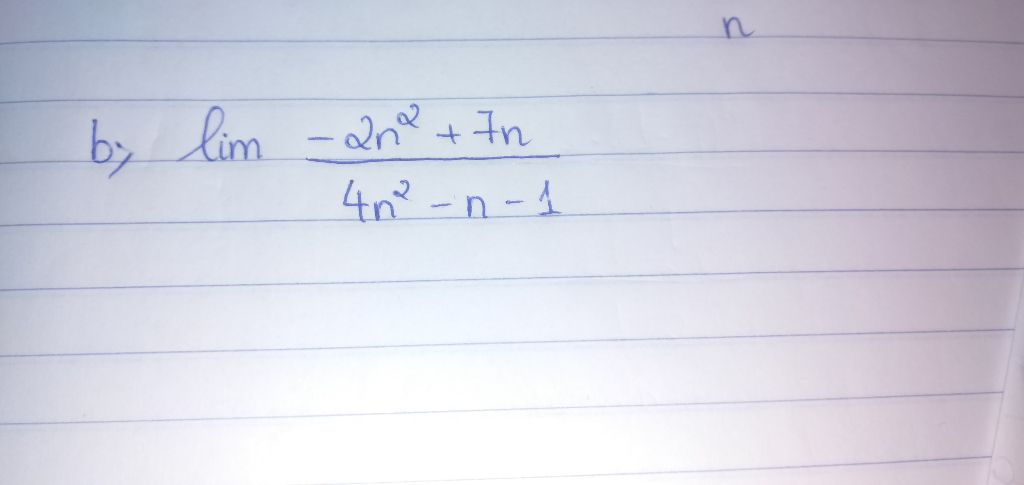 n
b, lim -2n² + 7n
4n² - n - 1